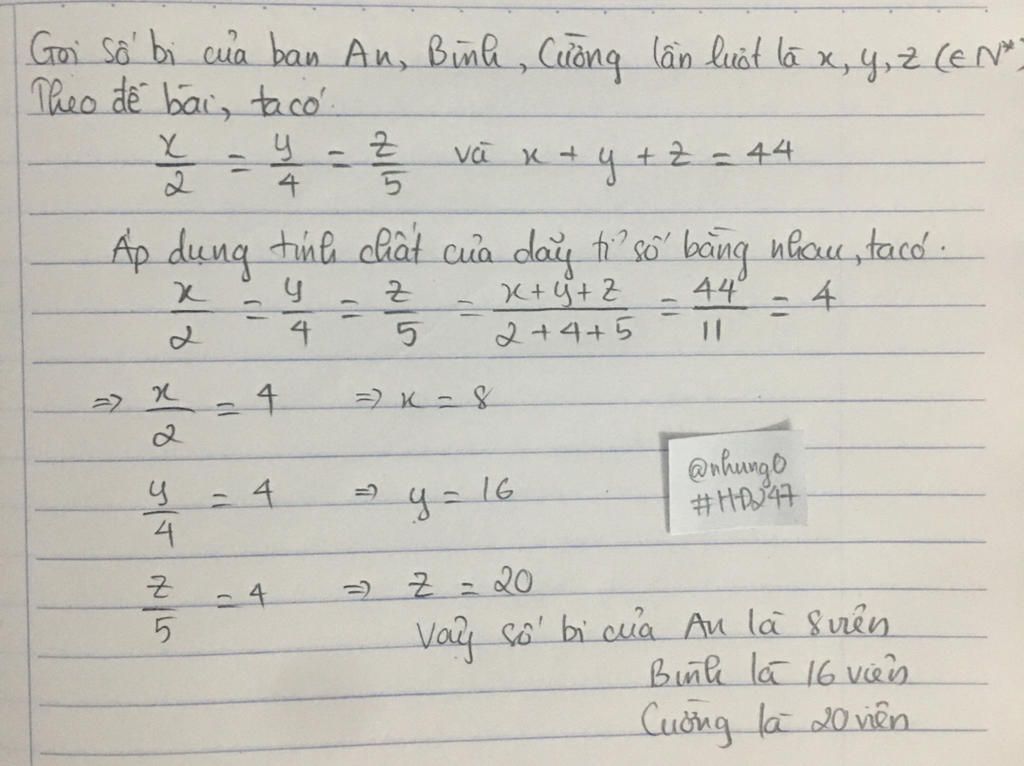 Gọi số bi của bạn An, Bình, Cường lần lượt là x, y, z (∈ N*)
Theo đề bài, ta có:
x/2 = y/4 = z/5 và x + y + z = 44
Áp dụng tính chất của dãy tỉ số bằng nhau, ta có:
x/2 = y/4 = z/5 = (x+y+z)/(2+4+5) = 44/11 = 4
=> x/2 = 4 => x = 8
y/4 = 4 => y = 16
@nhung0
#HĐ247
z/5 = 4 => z = 20
Vậy số bi của An là 8 viên
Bình là 16 viên
Cường là 20 viên